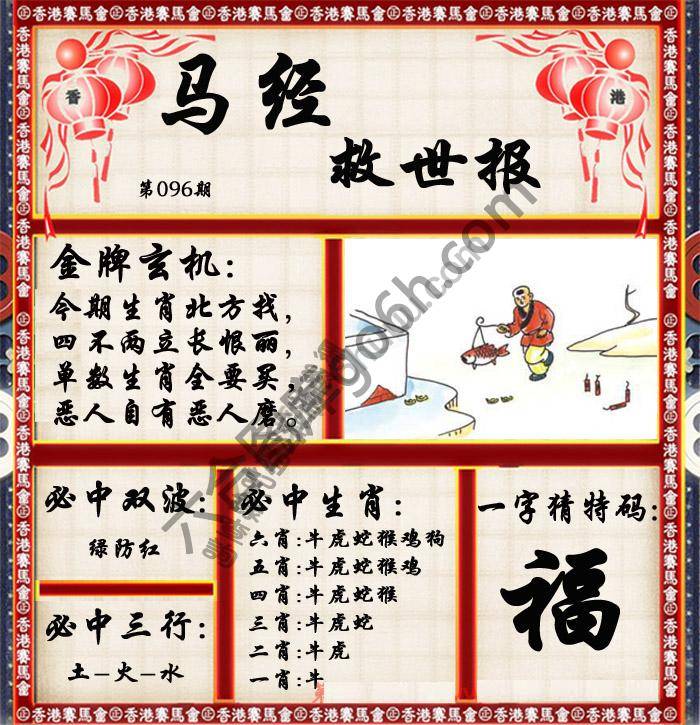 香港賽馬會㊣香港賽馬會㊣香港賽馬會㊣香港賽馬會㊣香港賽馬會㊣香港賽馬會㊣香港賽馬會
香
港
马经
救世报
第096期
金牌玄机:
今期生肖北方找,
四不两立长恨丽,
单数生肖全要买,
恶人自有恶人磨。
必中双波:
绿防红
必中三行:
土-火-水
必中生肖:
六肖:牛虎蛇猴鸡狗
五肖:牛虎蛇猴鸡
四肖:牛虎蛇猴
三肖:牛虎蛇
二肖:牛虎
一肖:牛
一字猜特码:
福